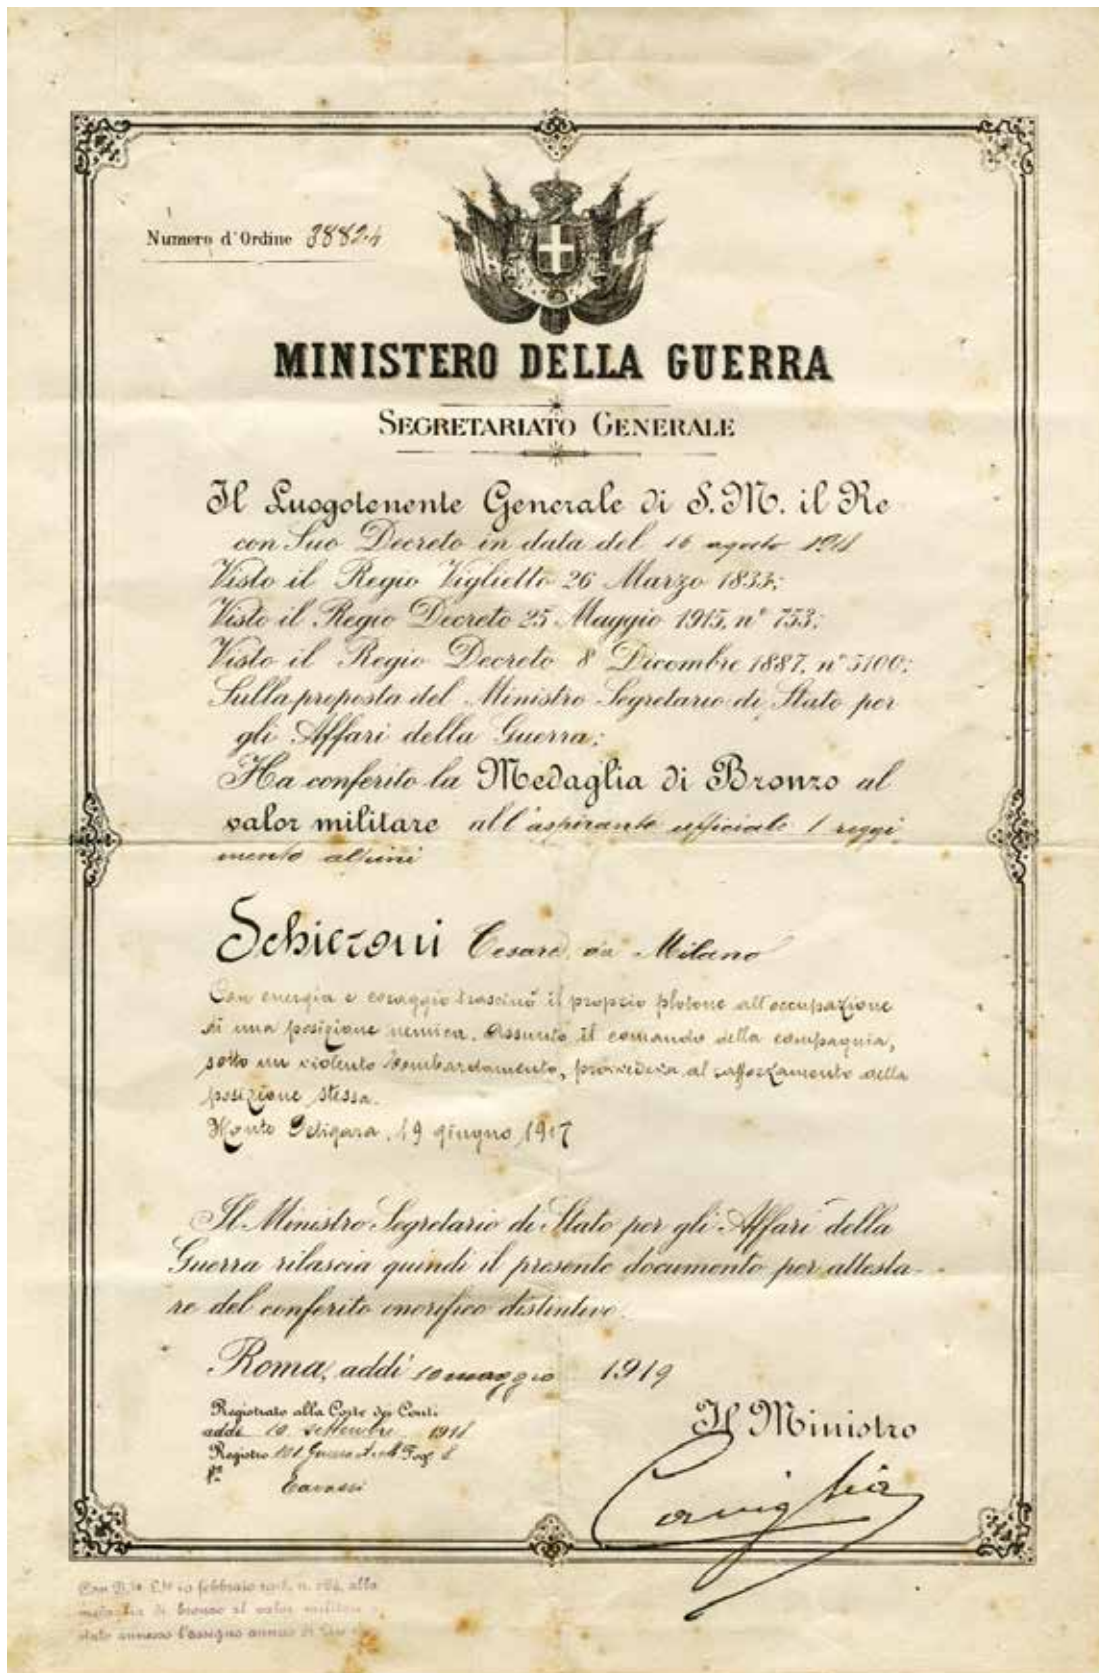 Numero d'Ordine 38824
MINISTERO DELLA GUERRA
SEGRETARIATO GENERALE
Il Luogotenente Generale di S. M. il Re
con Suo Decreto in data del 16 agosto 1918
Visto il Regio Viglietto 26 Marzo 1833;
Visto il Regio Decreto 25 Maggio 1915, n° 753;
Visto il Regio Decreto 8 Dicembre 1887, n° 5100;
Sulla proposta del Ministro Segretario di Stato per
gli Affari della Guerra;
Ha conferito la Medaglia di Bronzo al
valor militare all'aspirante ufficiale 1 reggi
mento alpini
Schieroni Cesare, da Milano
Con energia e coraggio trascinò il proprio plotone all'occupazione
di una posizione nemica. Assunto il comando della compagnia,
sotto un violento bombardamento, provvedeva al rafforzamento della
posizione stessa.
Monte Ortigara, 19 giugno 1917
Il Ministro Segretario di Stato per gli Affari della
Guerra rilascia quindi il presente documento per attesta-
re del conferito onorifico distintivo.
Roma, addì 10 maggio 1919
Registrato alla Corte dei Conti
addì 10 settembre 1918
Registro 101 Guerra Fog° 8
Il Ministro
Caviglia
febbraio alla
medaglia di bronzo al valor militare
stato annesso l'assegno annuo di Lire